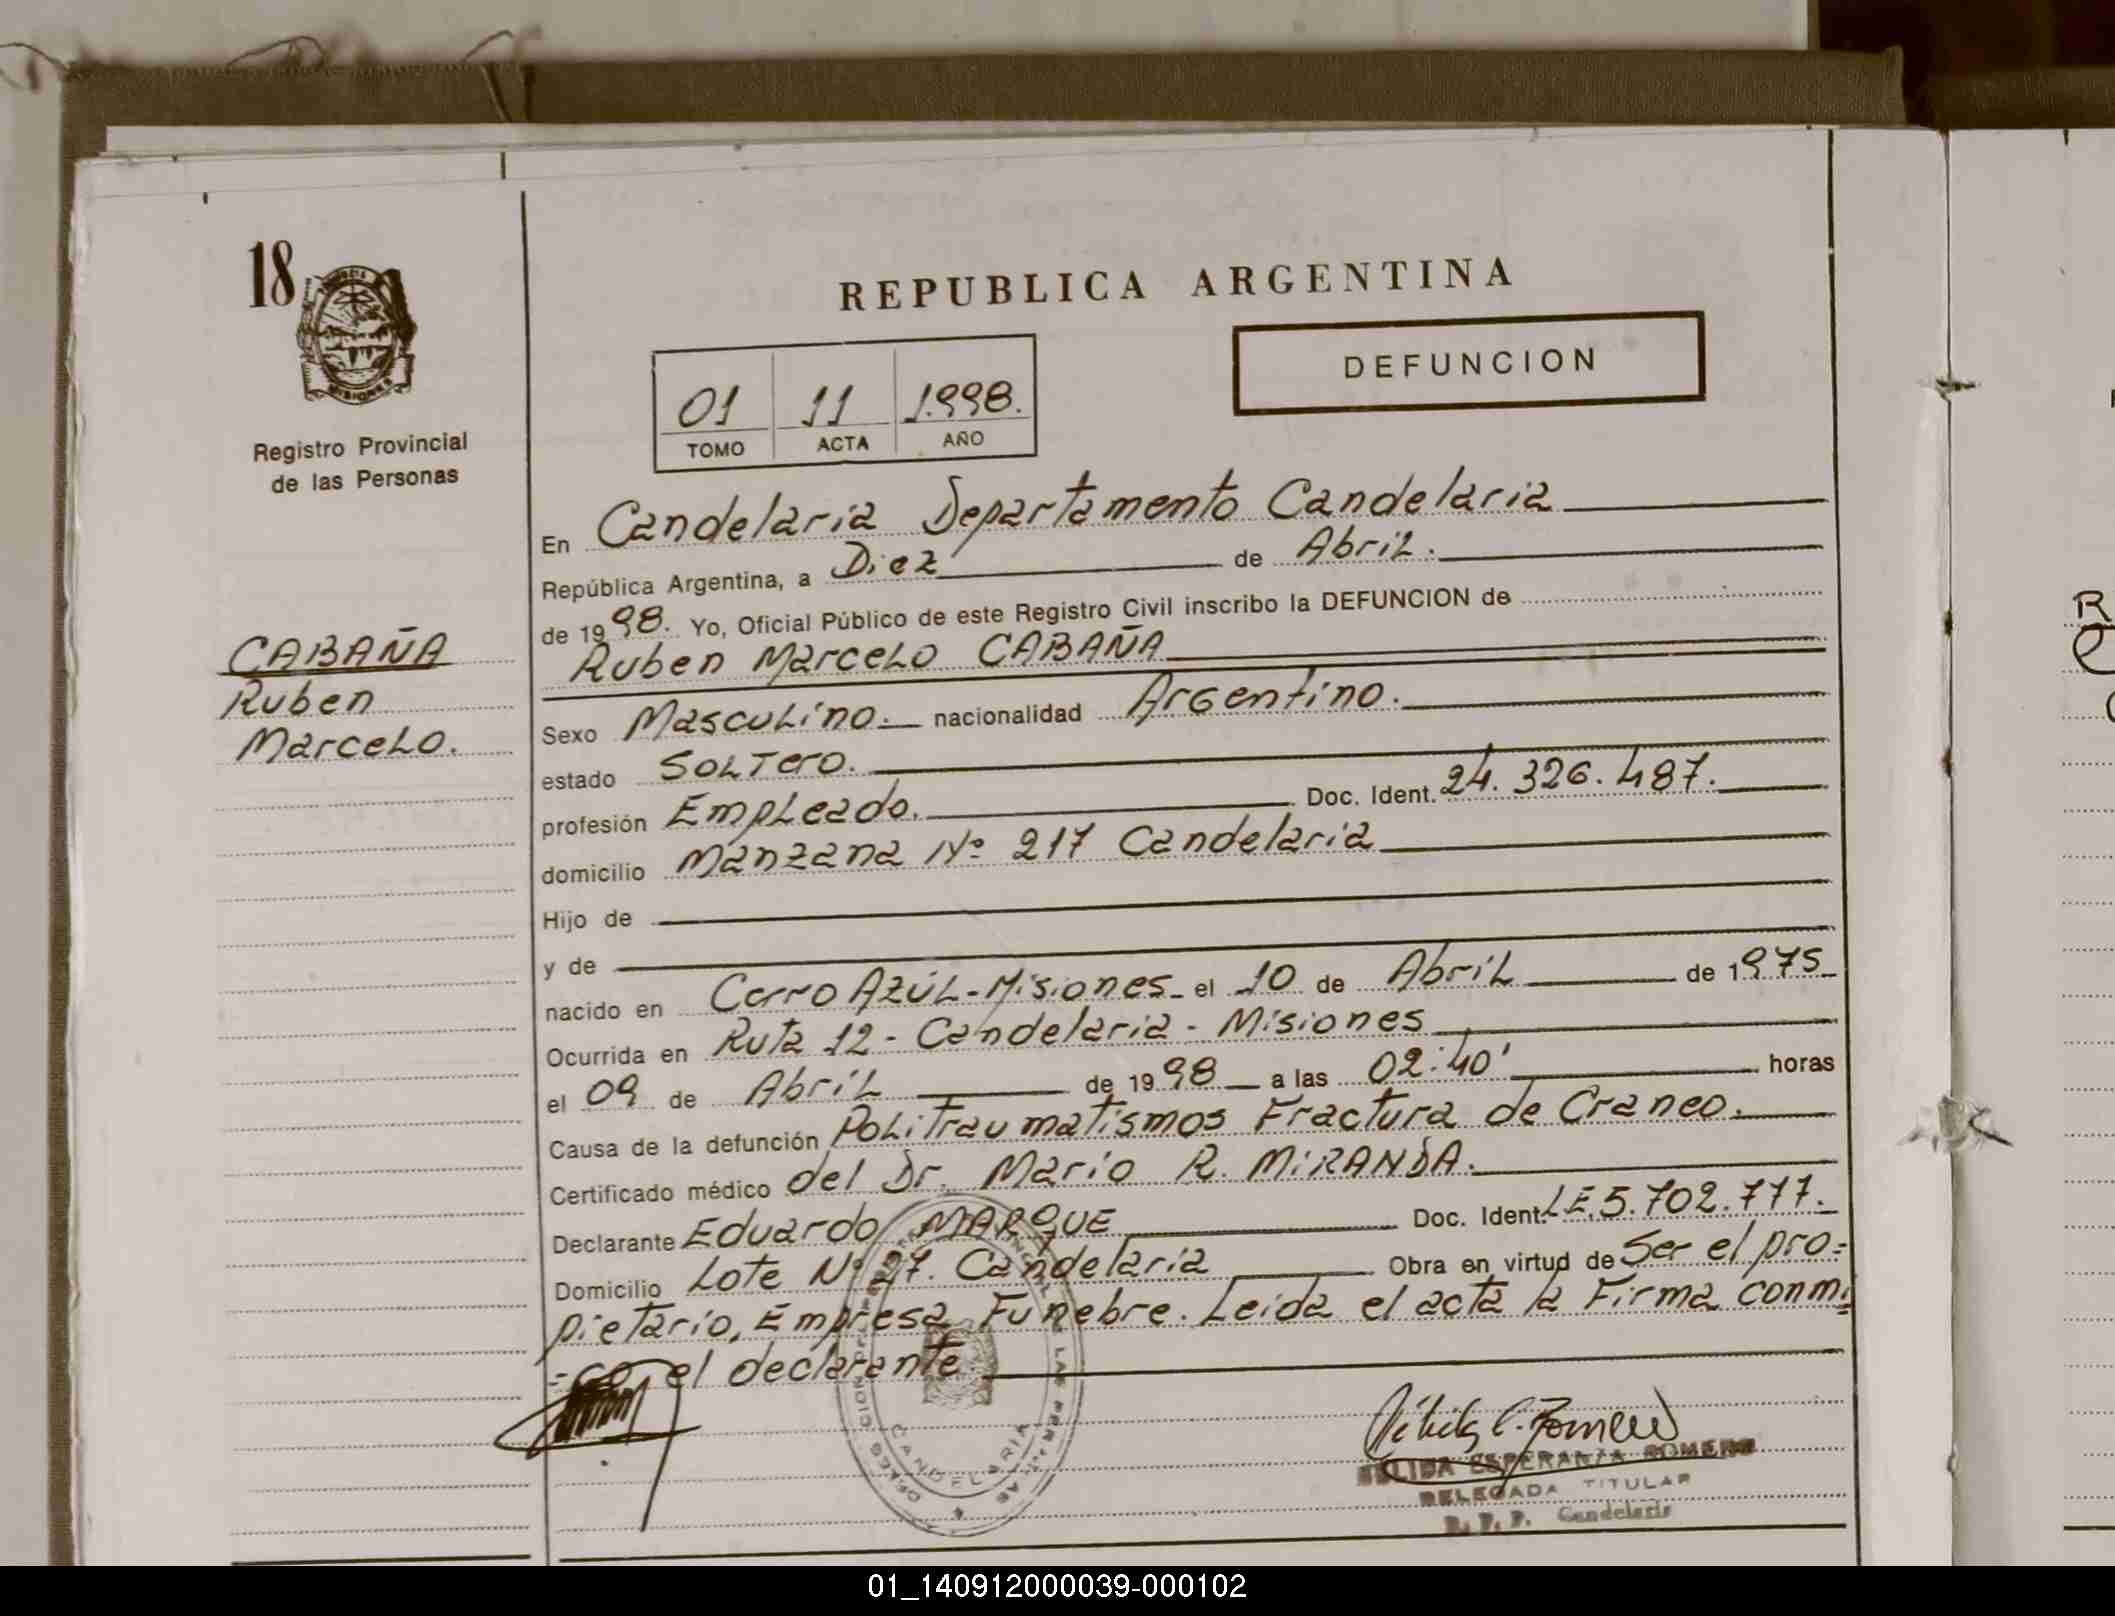 18
REPUBLICA ARGENTINA
DEFUNCION
01 11 1.998.
TOMO ACTA AÑO
MISIONES
Registro Provincial
de las Personas
En Candelaria Departamento Candelaria
República Argentina, a Diez de Abril.
de 1998. Yo, Oficial Público de este Registro Civil inscribo la DEFUNCION de
CABAÑA
Ruben
Marcelo.
Ruben Marcelo CABAÑA
Sexo Masculino. nacionalidad Argentino.
estado Soltero.
profesión Empleado. Doc. Ident. 24.326.487.
domicilio Manzana Nº 217 Candelaria
Hijo de
y de
nacido en Cerro Azúl-Misiones el 10 de Abril de 1975
Ocurrida en Ruta 12 - Candelaria - Misiones
el 09 de Abril de 1998 a las 02:40' horas
Causa de la defunción Politraumatismos Fractura de Craneo.
Certificado médico del Dr. Mario R. MIRANDA.
Declarante Eduardo MARQUE Doc. Ident. L.E. 5.702.777.
Domicilio Lote Nº 27. Candelaria Obra en virtud de Ser el pro=
pietario, Empresa Funebre. Leida el acta la Firma conmi
=go el declarante.
CANDELARIA
ESPERANZA ROMERO
DELEGADA TITULAR
R. P. P. Candelaria
01_140912000039-000102